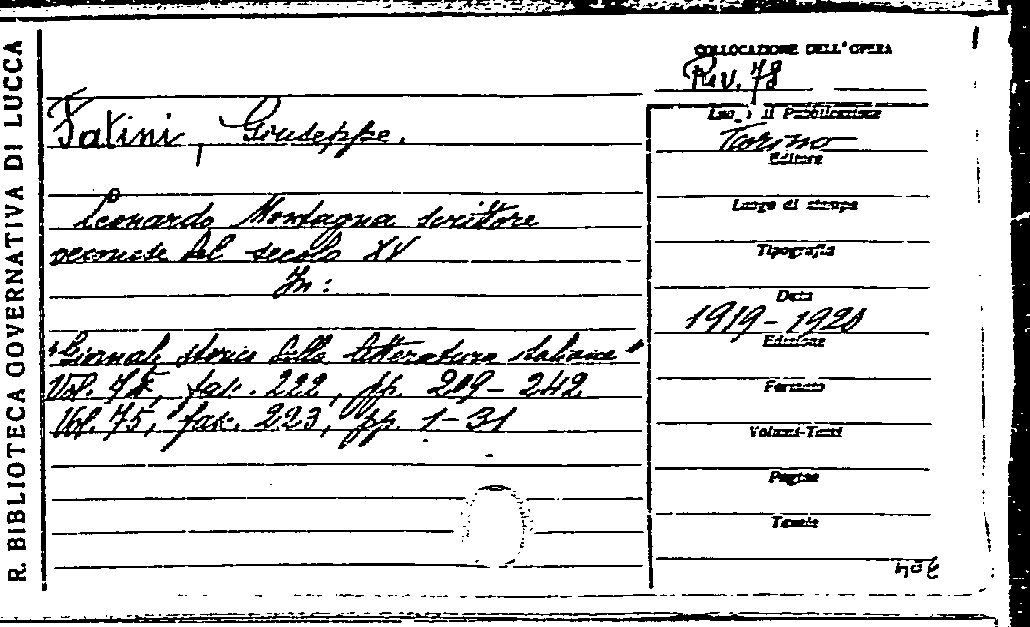 R. BIBLIOTECA GOVERNATIVA DI LUCCA
COLLOCAZIONE DELL'OPERA
Riv. 78
Fatini, Giuseppe.
Leonardo Montagna scrittore
veronese del secolo XV
In:
"Giornale storico della letteratura italiana"
Vol. 74, fasc. 222, pp. 209-242
Vol. 75, fasc. 223, pp. 1-31
Luogo di Pubblicazione
Torino
Editore
Luogo di stampa
Tipografia
Data
1919-1920
Edizione
Formato
Volumi-Tomi
Pagine
Tavole